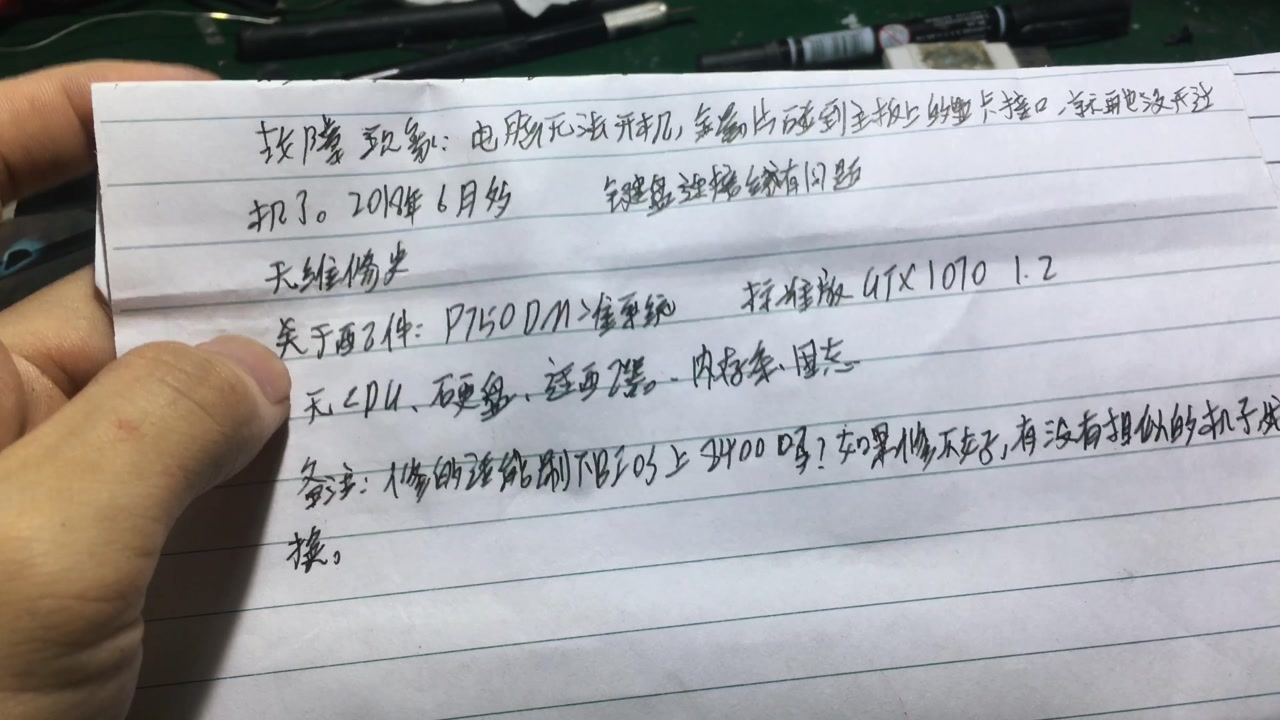 故障现象：电脑无法开机，金属片碰到主板上的显卡接口，就再也没开过
机了。2018年6月的 键盘连接线有问题
无维修史
关于配件：P750DM准系统 标准版GTX1070 1.2
无CPU、硬盘、适配器。、内存条、固态
备注：修的话能刷下BIOS上8400吗？如果修不好，有没有相似的机子或
换。